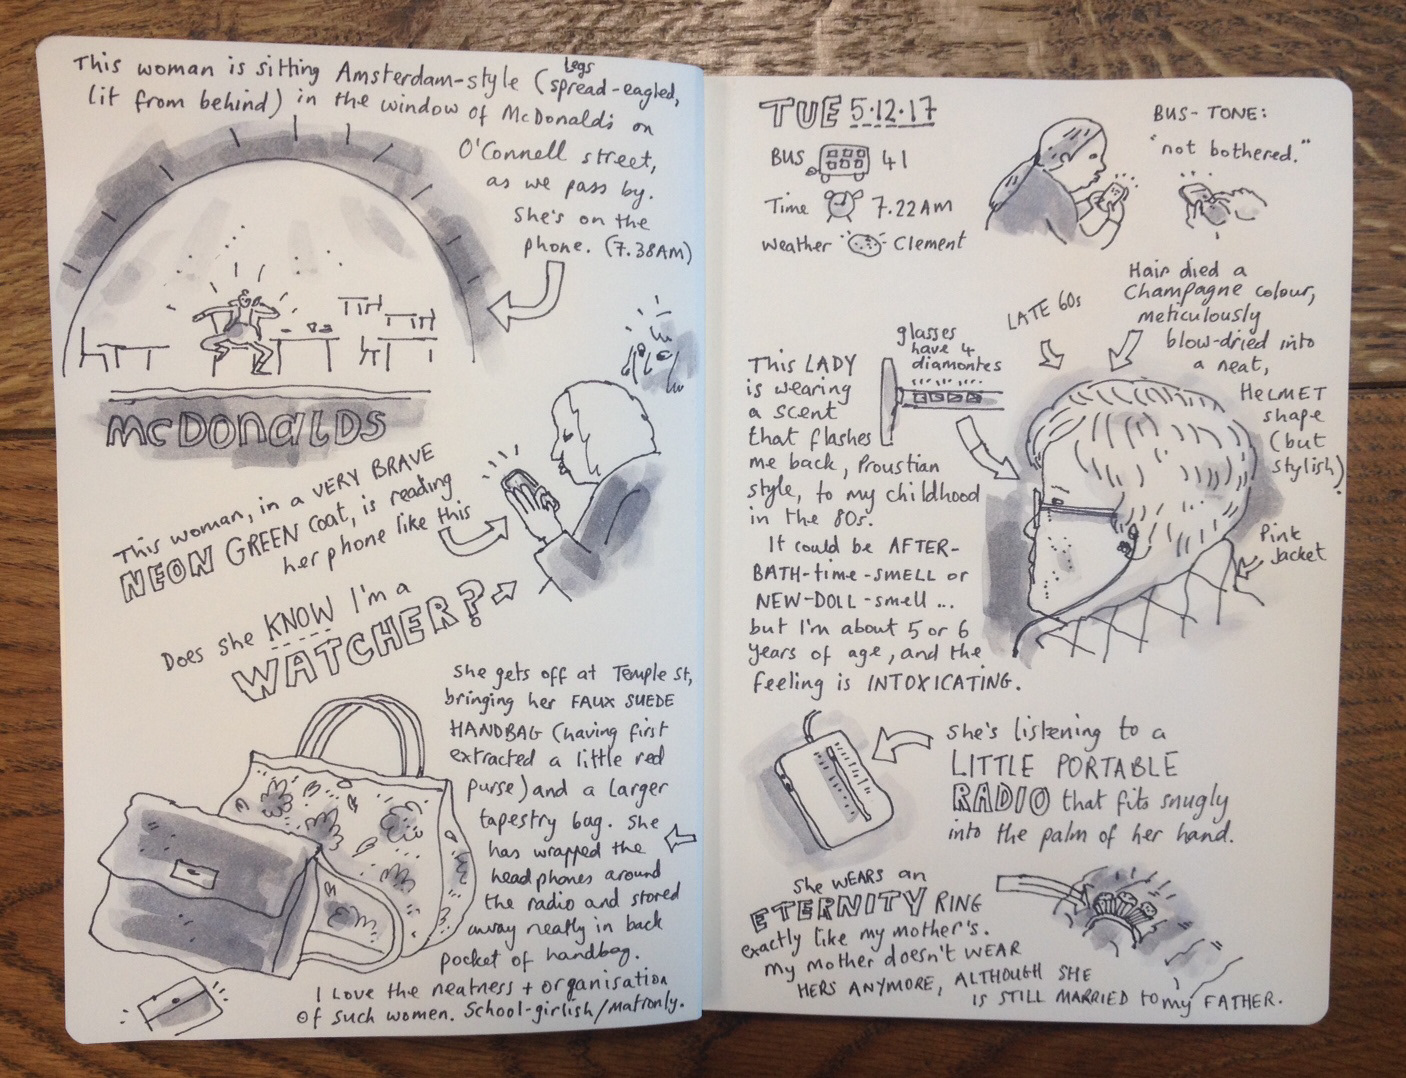 This woman is sitting Amsterdam-style (legs spread-eagled,
lit from behind) in the window of McDonalds on
O'Connell street,
as we pass by.
She's on the
phone. (7.38AM)
McDONALDS
This woman, in a VERY BRAVE
NEON GREEN coat, is reading
her phone like this
Does she KNOW I'm a
WATCHER?
She gets off at Temple St,
bringing her FAUX SUEDE
HANDBAG (having first
extracted a little red
purse) and a larger
tapestry bag. She
has wrapped the
headphones around
the radio and stored
away neatly in back
pocket of handbag.
I LOVE the neatness + organisation
of such women. School-girlish/matronly.
TUE 5.12.17
BUS 41
Time 7.22AM
Weather Clement
BUS-TONE:
"not bothered."
Hair died a
Champagne colour,
meticulously
blow-dried into
a neat,
HELMET
shape
(but
stylish).
LATE 60s
glasses
have 4
diamontes
Pink
Jacket
This LADY
is wearing
a scent
that flashes
me back, Proustian
style, to my childhood
in the 80s.
It could be AFTER-
BATH-time-SMELL or
NEW-DOLL-smell ...
but I'm about 5 or 6
years of age, and the
feeling is INTOXICATING.
She's listening to a
LITTLE PORTABLE
RADIO that fits snugly
into the palm of her hand.
She WEARS an
ETERNITY RING
exactly like my mother's.
my mother doesn't WEAR
HERS ANYMORE, ALTHOUGH SHE
IS STILL MARRIED to my FATHER.